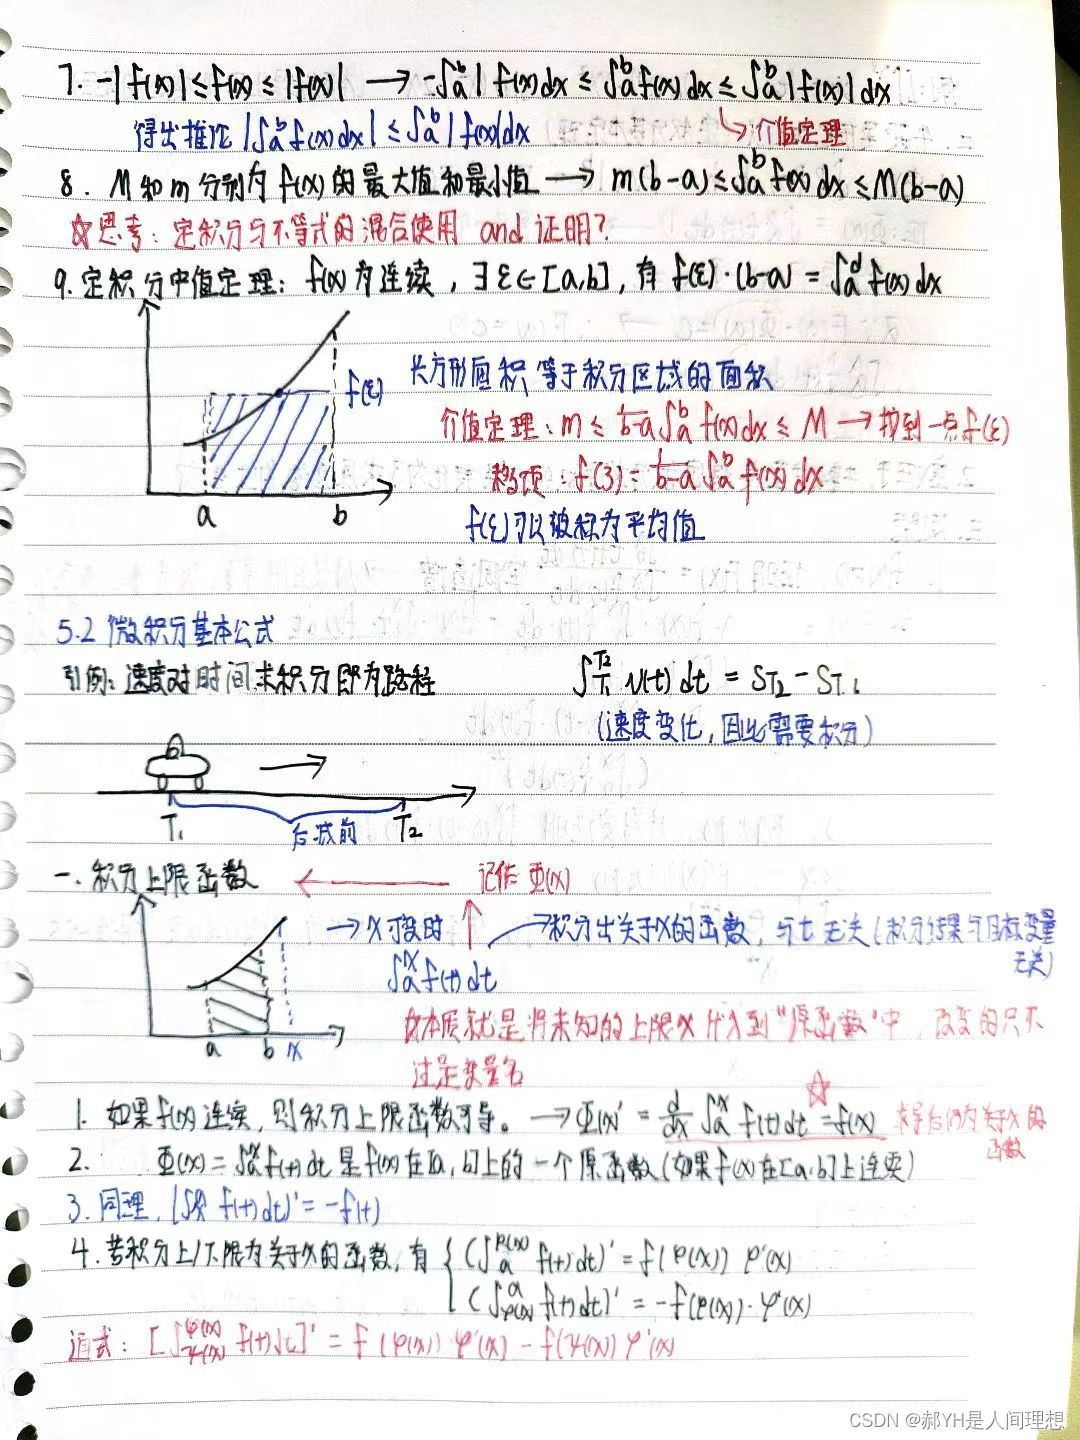 7. -|f(x)| ≤ f(x) ≤ |f(x)| → -∫ₐᵇ|f(x)dx ≤ ∫ₐᵇf(x)dx ≤ ∫ₐᵇ|f(x)|dx
得出推论 |∫ₐᵇf(x)dx| ≤ ∫ₐᵇ|f(x)|dx ↳介值定理
8. M和m分别为f(x)的最大值和最小值 → m(b-a) ≤ ∫ₐᵇf(x)dx ≤ M(b-a)
☆思考: 定积分与不等式的混合使用 and 证明?
9. 定积分中值定理: f(x)为连续, ∃ξ∈[a,b], 有 f(ξ)·(b-a) = ∫ₐᵈf(x)dx
f(ξ)
长方形面积等于积分区域的面积
介值定理: m ≤ 1/(b-a) ∫ₐᵇ f(x)dx ≤ M → 找到一点f(ξ)
移项: f(3) = 1/(b-a) ∫ₐᵇ f(x)dx
a b
f(ξ)可以被称为平均值
5.2 微积分基本公式
引例: 速度对时间求积分即为路程 ∫_{T₁}^{T₂} v(t)dt = S_{T₂} - S_{T₁}
(速度变化, 因此需要积分)
T₁ 后减前 T₂
一. 积分上限函数 ← 记作 Φ(x)
→ x可变时 → 积分出关于x的函数, 与t无关(积分结果与自变量
无关)
∫ₐˣ f(t)dt
故本质就是将未知的上限x代入到"原函数"中, 改变的只不
过是变量名
a b x
1. 如果f(x)连续, 则积分上限函数可导。 → Φ(x)' = d/dx ∫ₐˣ f(t)dt = f(x) ☆ 求导后仍为关于x的
函数
2. Φ(x) = ∫ₐˣ f(t)dt 是f(x)在[a,b]上的一个原函数(如果f(x)在[a,b]上连续)
3. 同理, f(t)dt)' = -f(t)
4. 若积分上/下限为关于x的函数, 有 { (∫ₐ^{φ(x)} f(t)dt)' = f(φ(x)) φ'(x)
(∫_{φ(x)}^a f(t)dt)' = -f(φ(x))·φ'(x)
通式: [∫_{ψ(x)}^{φ(x)} f(t)dt]' = f(φ(x)) φ'(x) - f(ψ(x)) φ'(x)
CSDN @郝YH是人间理想